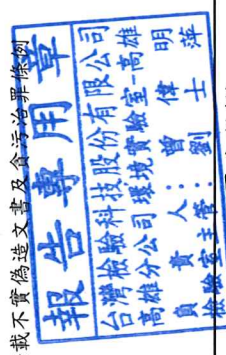 載不實偽造文書及貪污治罪條例
報告專用章
台灣檢驗科技股份有限公司
高雄分公司環境實驗室-高雄
負責人：曾偉明
檢驗室主管：劉士萍